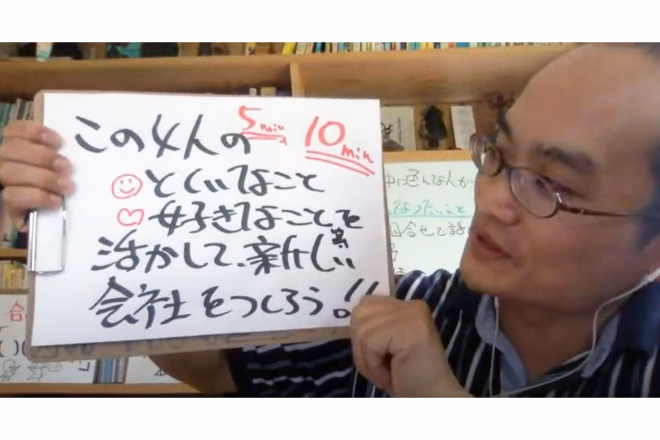 この4人の 5min 10min
とくいなこと
好きなことを
活かして、新しい
会社をつくろう!!
中に色んな人が
合せて話
合